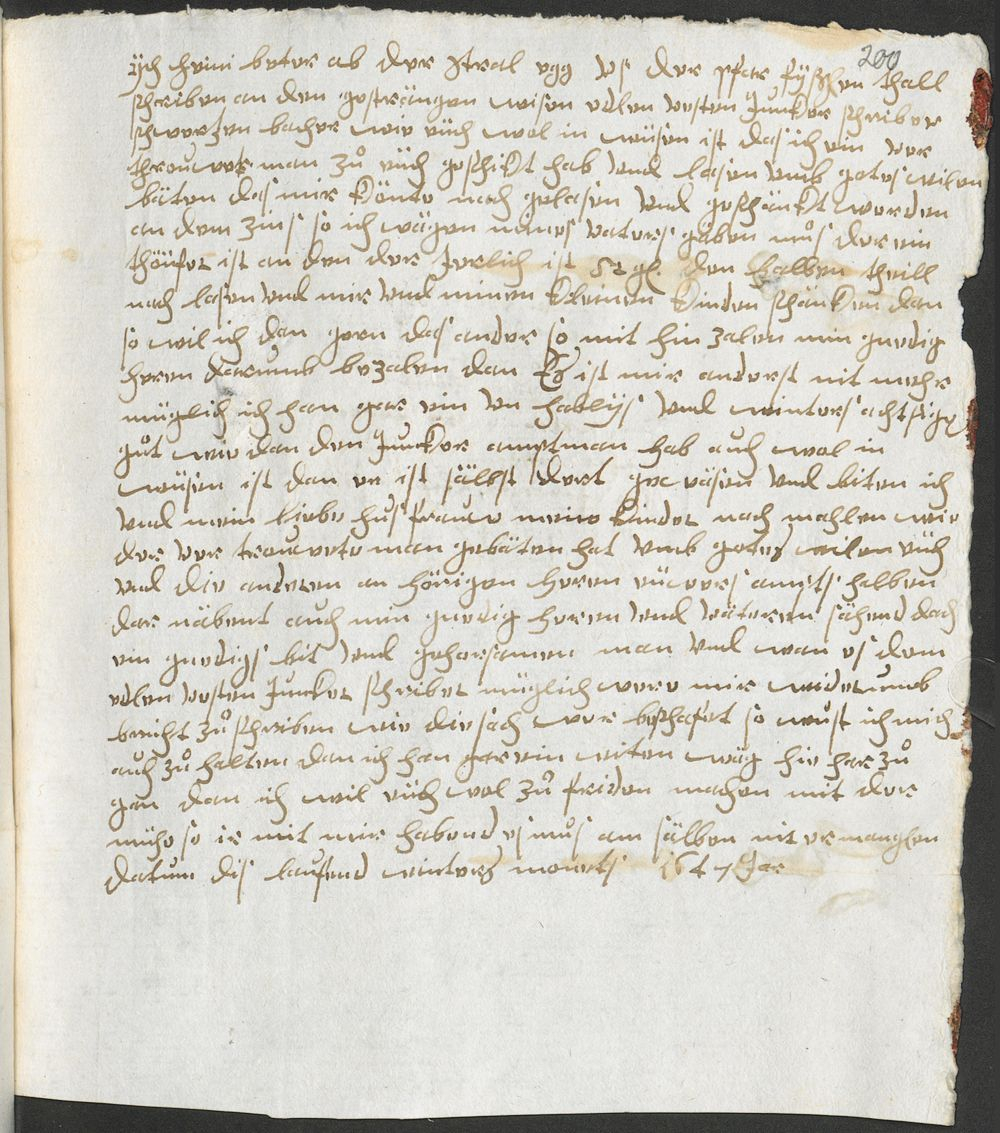 200
Ich heini beter ab der stral egg us der pfar fyschen thall
schriben an den gesträngen wisen edlen vesten Juncker schriber
schwerzen bacher wie üch wol in wüsen ist das ich ein ver
throuwete man zů üch geschikt hab und lasen umb gotes wilen
bäten das mir könte nach gelasen und geschänckt werden
an dem zins so ich wägen mines vaters gäben můs der ein
thöüfer ist an den der Jerlich ist 52 gl. den halben theill
nach lasen und mir und minen kleinen kinden schäncken dan
so wil ich dan gern das ander so mit hin zalen min gnedig
heren darumb bezalen dan Es ist mir anderst nit mehr
müglich ich han gar ein un hablÿs und winters achtsigs
gůt wie dan den Juncker amptman hab auch wol in
wüsen ist dan er ist sälbst dert gewäsen und biten ich
und mein liebe husfrauw meine kinder nach mahlen wie
der ver trouwete man gebäten hat umb gotes wilen üch
und die anderen an hörigen heren eüwers ampts halben
dar näbent auch min gnedig heren und väteren sähend doch
ein gnedigs bit und gehorsamen man und wan es dem
edlen vesten Juncker schriber müglich were mir widerumb
bericht zů schriben wie die sach wer beschafet so wůst ich mich
auch zů halten dan ich han gar ein witen wäg hie har zů
gan dan ich wil üch wol zů friden machen mit der
mühe so ir mit mir habend es můs am sälben nit ermanglen
datum dis laufend winters monets 1647 Jar